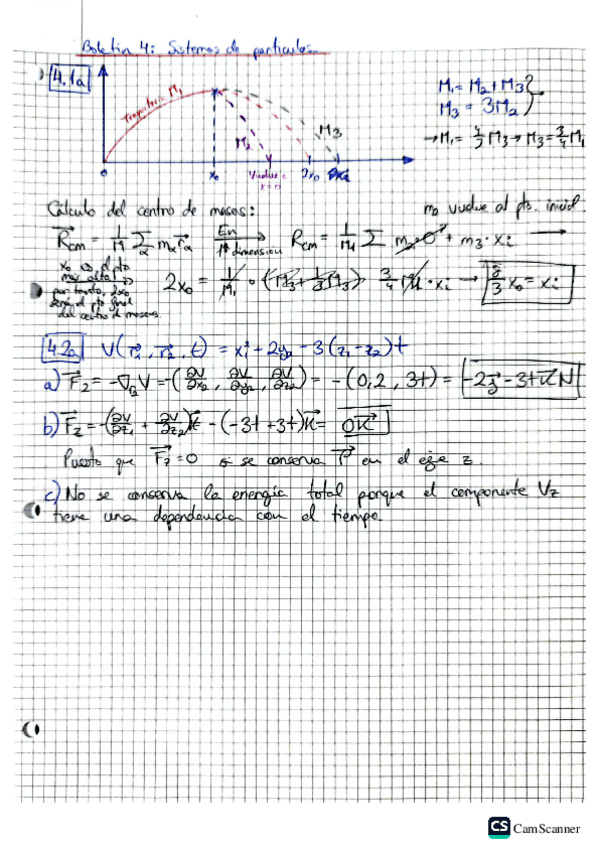 Boletín 4: Sistemas de partículas.
4.1a
Trayectoria M₁
M₂
M₃
0 x₀ Vuelve a x=0 2x₀ xᵢ
M₁ = M₂ + M₃
M₃ = 3M₂
→ M₁ = 4/3 M₃ → M₃ = 3/4 M₁
Cálculo del centro de masas:
m₂ vuelve al pto. inicial.
R⃗cm = 1/M Σα mα r⃗α En 1 dimensión → Rcm = 1/M₁ Σ m₂·0 + m₃·xᵢ →
x₀ es el pto
más alto
por tanto, 2x₀
será el pto final
del centro de masas.
2x₀ = 1/M₁ · (M₃ + 1/3 M₃) 3/4 M₁·xᵢ → 8/3 x₀ = xᵢ
4.2a V(r⃗₁, r⃗₂, t) = x₁² + 2y₂ - 3(z₁ - z₂)t
a) F⃗₂ = -∇r₂V = -(∂V/∂x₂, ∂V/∂y₂, ∂V/∂z₂) = -(0, 2, 3t) = -2j⃗ - 3tk⃗ N
b) F⃗z = -(∂V/∂z₁ + ∂V/∂z₂)k⃗ = -(-3t + 3t)k⃗ = 0k⃗
Puesto que F⃗z = 0 se conserva P⃗ en el eje z.
c) No se conserva la energía total porque el componente Vz
tiene una dependencia con el tiempo.
CS CamScanner